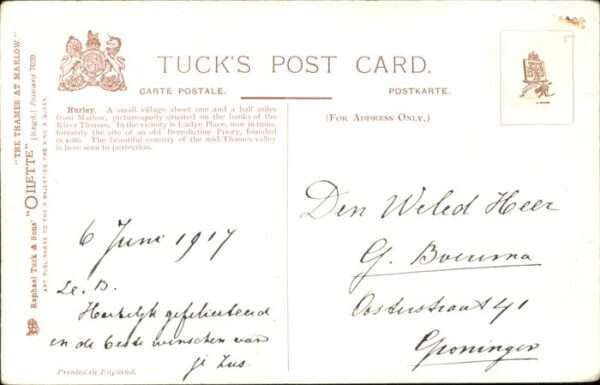 TUCK'S POST CARD.
CARTE POSTALE.
POSTKARTE.
(FOR ADDRESS ONLY.)
Hurley. A small village about one and a half miles
from Marlow, picturesquely situated on the banks of the
River Thames. In the vicinity is Ladye Place, now in ruins,
formerly the site of an old Benedictine Priory, founded
in 1086. The beautiful country of the mid-Thames valley
is here seen to perfection.
6 Juni 1917
Le. B.
Hartelijk gefeliciteerd
en de beste wenschen van
je Zus.
Den Weled Heer
G. Boerma
Oosterstraat 41
Groningen
Printed in England.
Raphael Tuck & Sons' "OILETTE" [Regd.] Postcard
"THE THAMES AT MARLOW."
ART PUBLISHERS TO THEIR MAJESTIES THE KING & QUEEN.